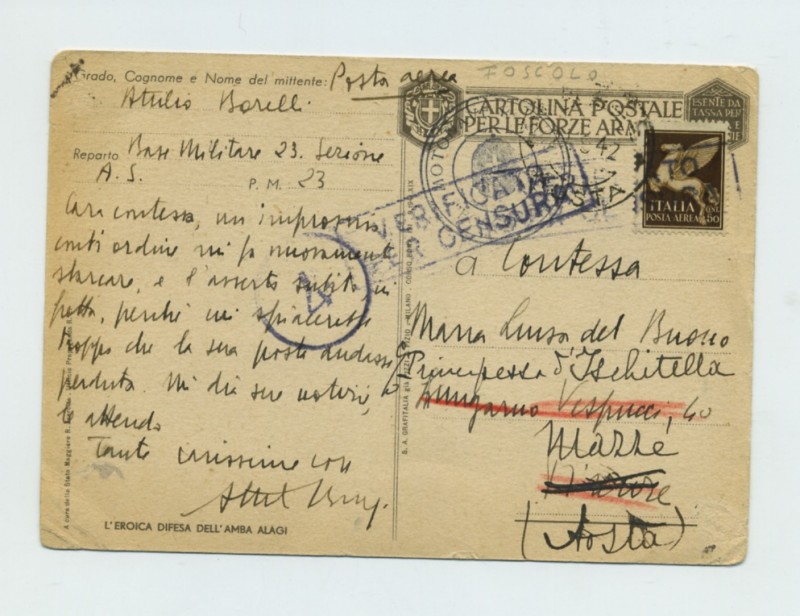 FOSCOLO
Grado, Cognome e Nome del mittente: Posta aerea
Attilio Borelli
Reparto Base Militare 23. Sezione
A. S. P. M. 23
Cara contessa, un improvviso
contrordine mi fa nuovamente
sbarcare, e l'avverto subito in
fretta, perchè mi spiacerebbe
troppo che la sua posta andasse
perduta. Mi dia sue notizie,
le attendo
Tante carissime cose
L'EROICA DIFESA DELL'AMBA ALAGI
CARTOLINA POSTALE
PER LE FORZE ARMATE
ESENTE DA
TASSA PER
VERIFICATA
PER CENSURA
4
42
ITALIA
POSTA AEREA
a Contessa
Maria Luisa del Bosco
Principessa d'Ischitella
Lungarno Vespucci, 40
Mazzè
Firenze
(Aosta)